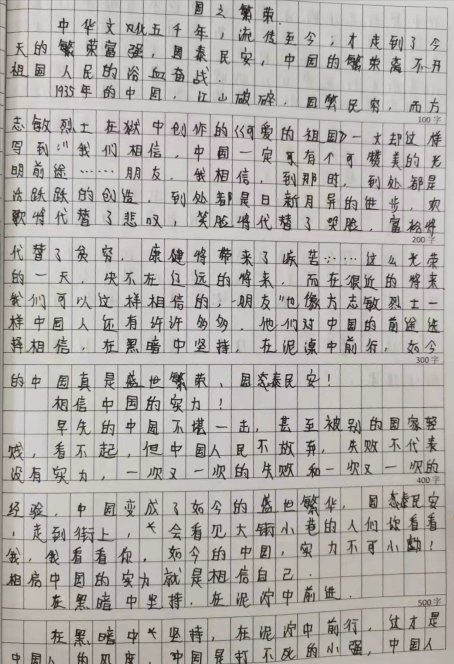 国之繁荣
中华文化五千年，流传至今，才走到了今
天的繁荣富强，国泰民安，中国的繁荣离不开
祖国人民的浴血奋战．
1935年的中国，江山破碎，国弊民穷，而方
100字
志敏烈士在狱中创作的《可爱的祖国》一文却这样
写到：“我们相信，中国一定可有个可赞美的光
明前途……朋友，我相信，到那时，到处都是
活跃跃的创造，到处都是日新月异的进步，欢
歌将代替了悲叹，笑脸将代替了哭脸，富裕将
200字
代替了贫穷，康健将带来了疾苦……这么光荣
的一天，决不在辽远的将来，而在很近的将来
我们可以这样相信的，朋友”也像方志敏烈士一
样中国人还有许许多多，他们对中国的前途选
择相信，在黑暗中坚持，在泥潭中前行，如今
300字
的中国真是盛世繁荣、国泰民安！
相信中国的实力！
早先的中国不堪一击，甚至被别的国家轻
贱，看不起，但中国人民不放弃，失败不代表
没有实力，一次又一次的失败和一次又一次的
400字
经验，中国变成了如今的盛世繁华，国泰民安
，走到街上，会看见大街小巷的人们你看看
我，我看看你，如今的中国，实力不可小勤！
相信中国的实力就是相信自己．
在黑暗中坚持，在泥泞中前进．
500字
在黑暗中坚持，在泥泞中前行，这才是
中国人的风度，中国是打不死的小强，中国人